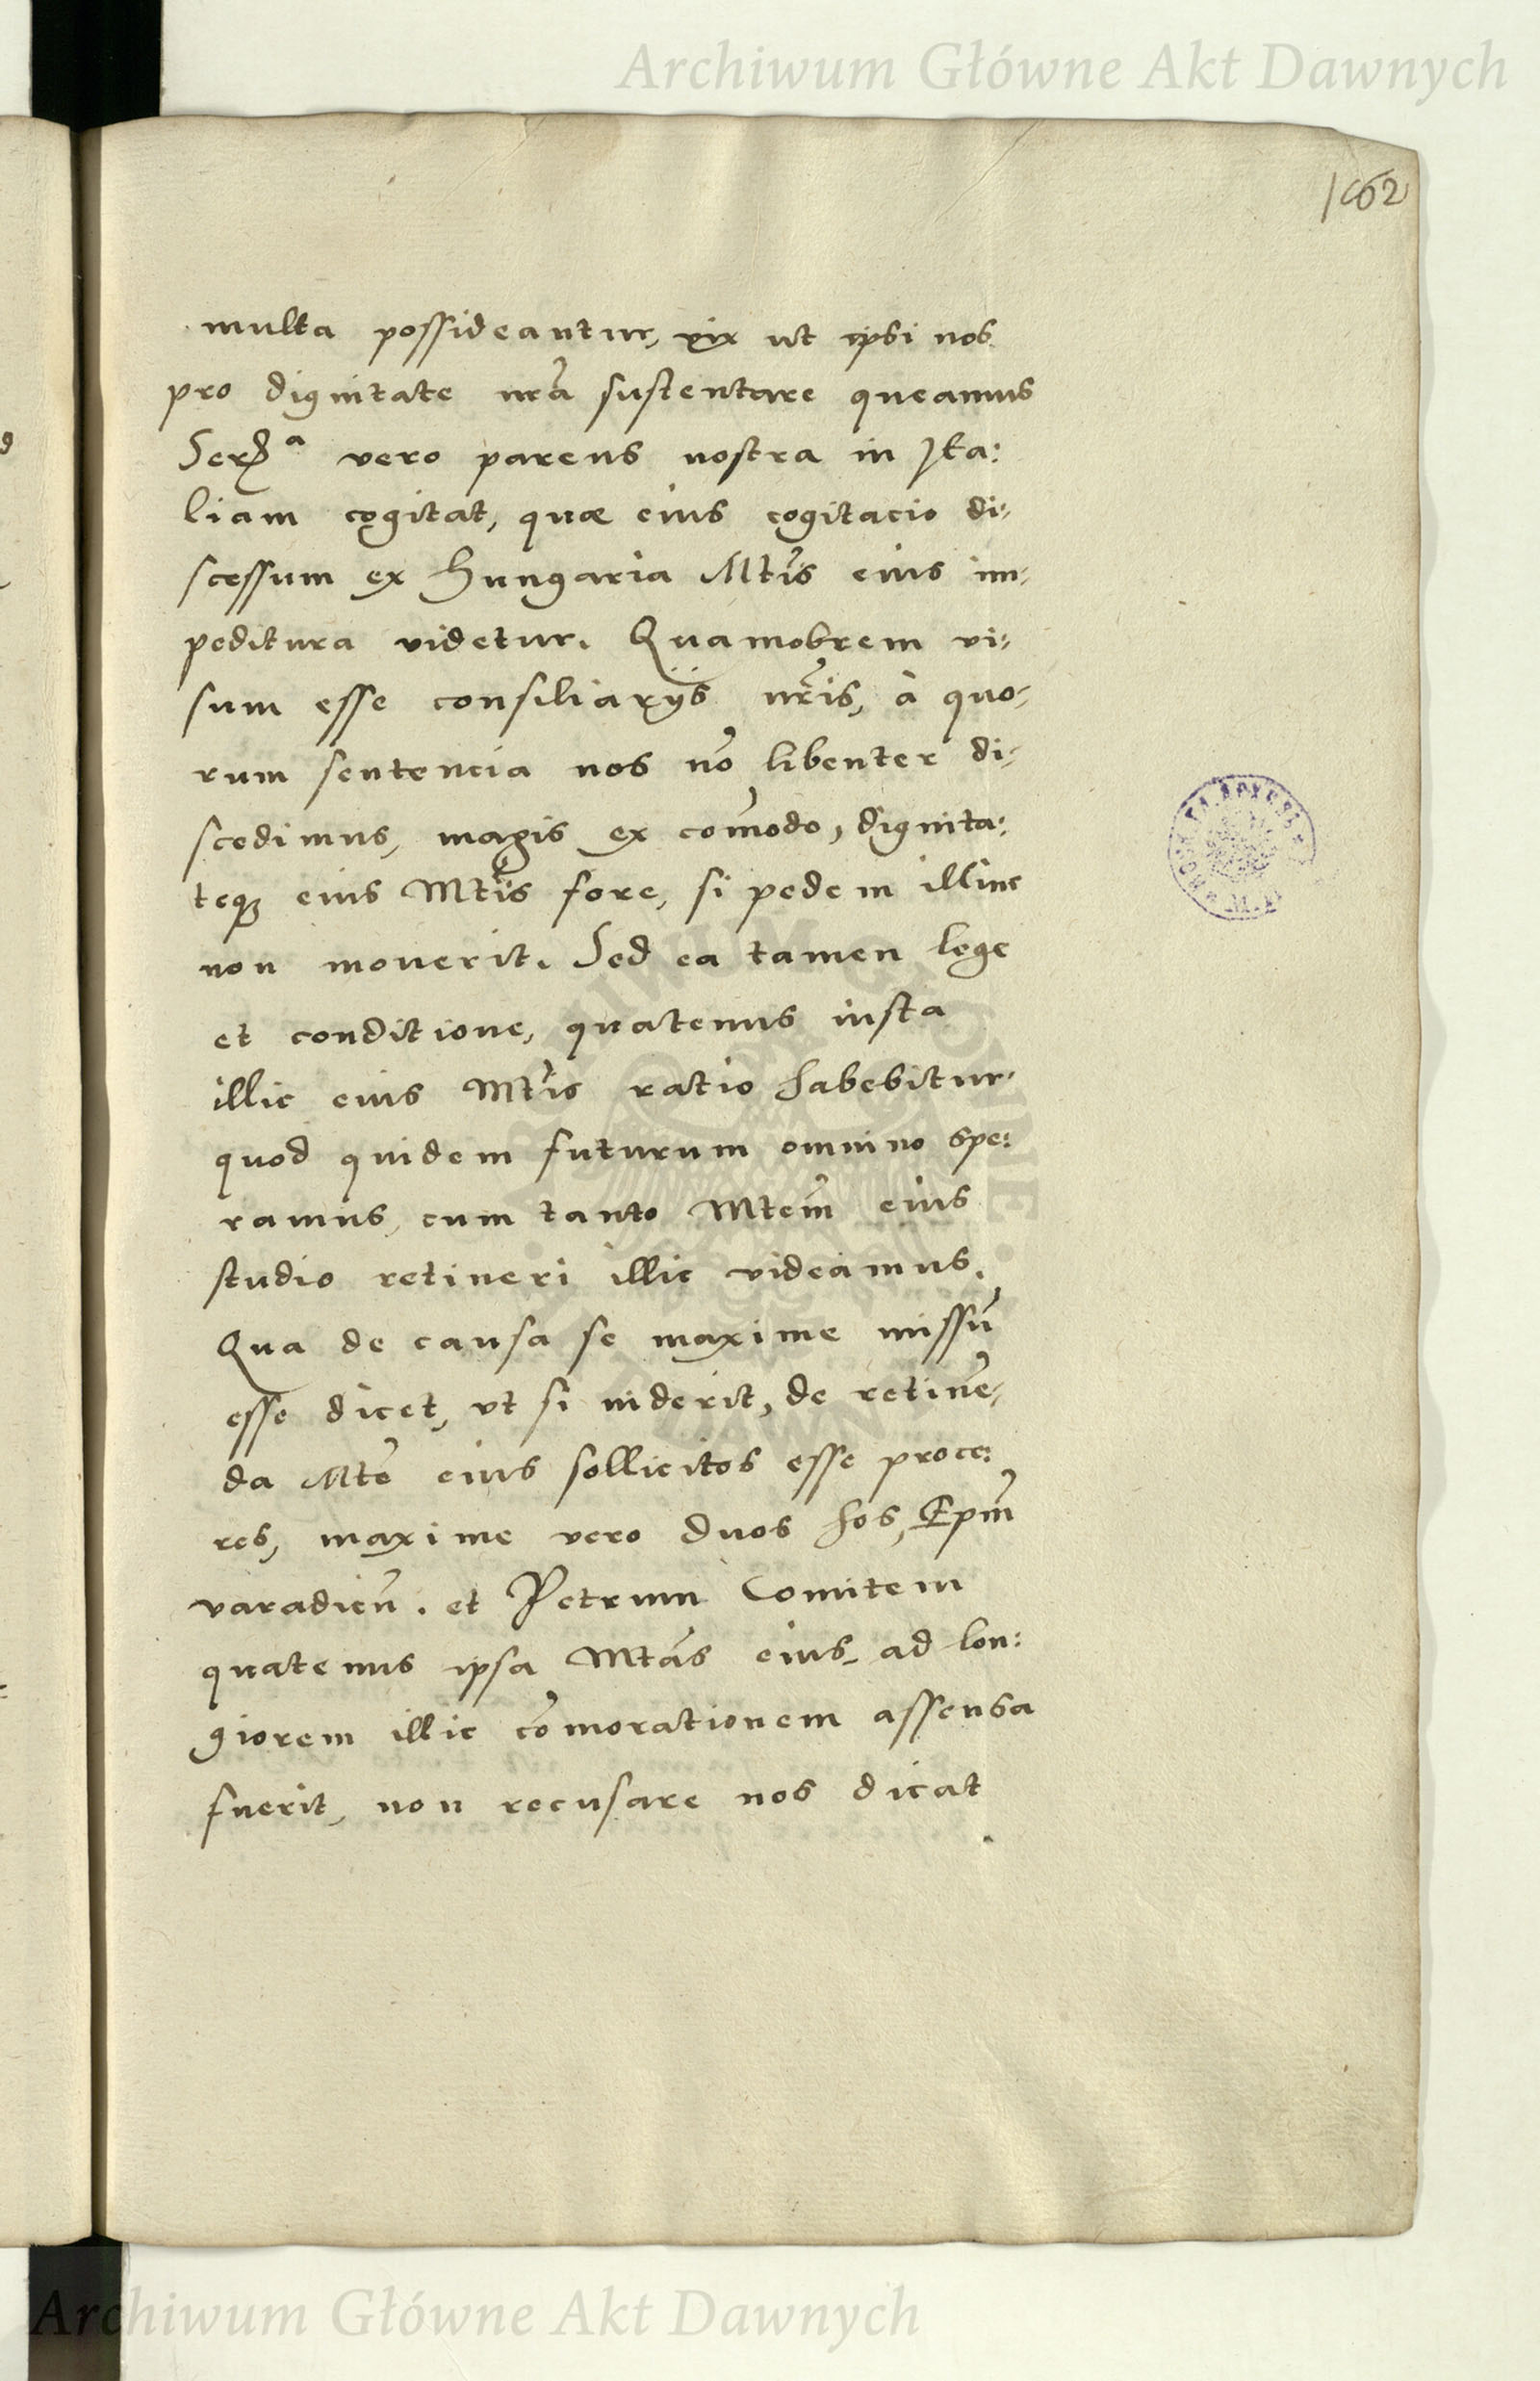 Archiwum Główne Akt Dawnych
162
multa possideantur, vix ut ipsi nos
pro dignitate nrã sustentare queamus
Ser. a vero parens nostra in Ita:
liam cogitat, quæ eius cogitacio di-
scessum ex Hungaria Mtis eius im-
peditura videtur. Quamobrem vi-
sum esse consiliarijs nris, à quo-
rum sentencia nos nõ libenter di-
scedimus, magis ex comodo, dignita:
teq eius Mtis fore, si pedem illinc
non mouerit. Sed ea tamen lege
et conditione, quatenus iusta
illic eius Mtis ratio habebitur
quod quidem futurum omnino spe:
ramus, cum tanto Mtem eius
studio retineri illic videamus.
Qua de causa se maxime missũ
esse dicet, vt si uiderit, de retinẽ-
da Mte eius sollicitos esse proce:
res, maxime vero duos hos, Epm
varadien. et Petrum Comitem
quatenus ipsa Mtas eius ad lon:
giorem illic cõmorationem assensa
fuerit, non recusare nos dicat
Archiwum Główne Akt Dawnych